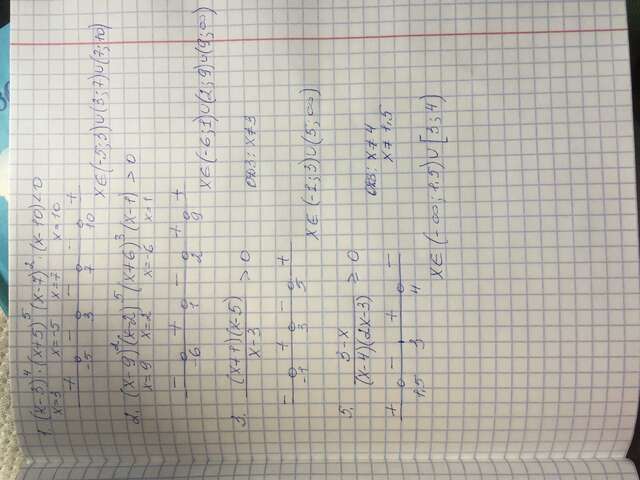 1. (x-3)⁴·(x+5)⁵·(x-7)²·(x-10)<0
x=3 x=-5 x=7 x=10
+ - - - +
-5 3 7 10
x∈(-5;3)∪(3;7)∪(7;10)
2. (x-9)²(x-2)⁵(x+6)³(x-1)>0
x=9 x=2 x=-6 x=1
- + - + +
-6 1 2 9
x∈(-6;1)∪(2;9)∪(9;∞)
3. (x+1)(x-5)
x-3
>0
ОДЗ: x≠3
- + - +
-1 3 5
x∈(-1;3)∪(5;∞)
5. 3-x
(x-4)(2x-3)
≥0
ОДЗ: x≠4
x≠1,5
+ - + -
1,5 3 4
x∈(-∞;1,5)∪[3;4)